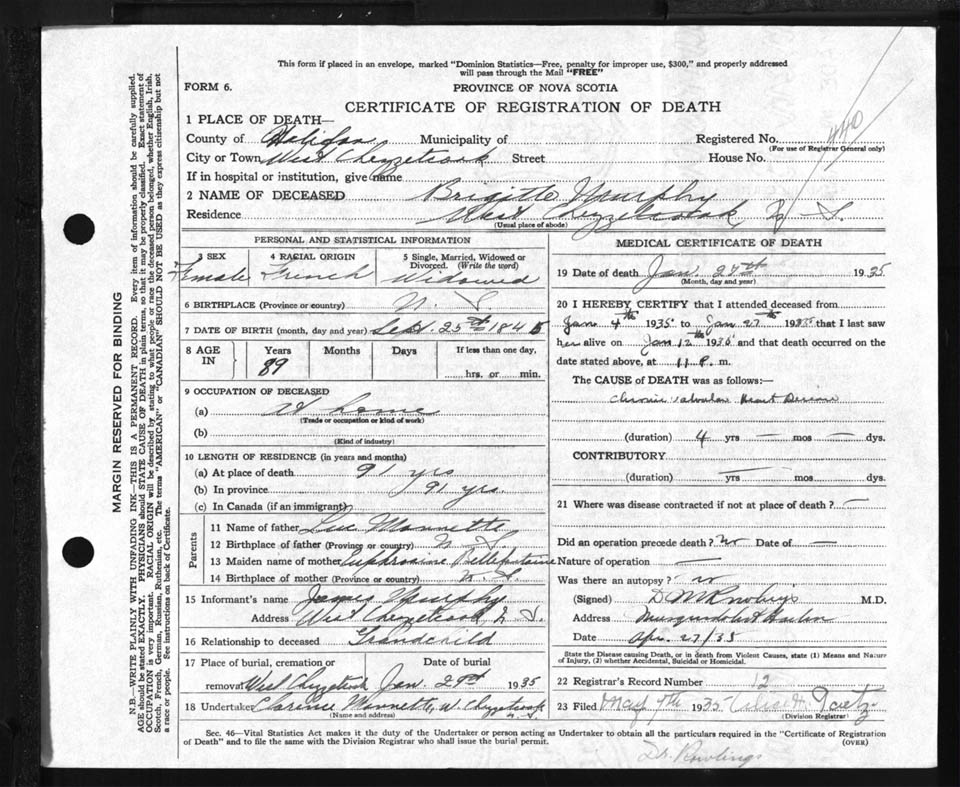 This form if placed in an envelope, marked "Dominion Statistics—Free, penalty for improper use, $300," and properly addressed
will pass through the Mail "FREE"
FORM 6.
PROVINCE OF NOVA SCOTIA
CERTIFICATE OF REGISTRATION OF DEATH
440
1 PLACE OF DEATH—
County of Halifax Municipality of Registered No.
(For use of Registrar General only)
City or Town West Chezzetcook Street House No.
If in hospital or institution, give name
2 NAME OF DECEASED Brigitte Murphy
Residence West Chezzetcook, N. S.
(Usual place of abode)
PERSONAL AND STATISTICAL INFORMATION
3 SEX 4 RACIAL ORIGIN 5 Single, Married, Widowed or
Divorced. (Write the word)
Female French Widowed
6 BIRTHPLACE (Province or country) N. S.
7 DATE OF BIRTH (month, day and year) Sept. 25th 1845
8 AGE IN Years Months Days If less than one day,
89 hrs. or min.
9 OCCUPATION OF DECEASED
(a) At home
(Trade or occupation or kind of work)
(b)
(Kind of industry)
10 LENGTH OF RESIDENCE (in years and months)
(a) At place of death 91 yrs
(b) In province 91 yrs.
(c) In Canada (if an immigrant)
Parents
11 Name of father Luc Monnette
12 Birthplace of father (Province or country) N. S.
13 Maiden name of mother Euphrosine Bellefontaine
14 Birthplace of mother (Province or country) N. S.
15 Informant's name James Murphy
Address West Chezzetcook N. S.
16 Relationship to deceased Grandchild
17 Place of burial, cremation or Date of burial
removal West Chezzetcook Jan. 29th 1935
18 Undertaker Clarence Monnette, W. Chezzetcook
(Name and address) N. S.
MEDICAL CERTIFICATE OF DEATH
19 Date of death Jan. 27th 1935
(Month, day and year)
20 I HEREBY CERTIFY that I attended deceased from
Jan 4th 1935 to Jan 27 1935 that I last saw
her alive on Jan 12th 1935 and that death occurred on the
date stated above, at 11 P. m.
The CAUSE of DEATH was as follows:—
Chronic valvular Heart Disease
(duration) 4 yrs — mos — dys.
CONTRIBUTORY
(duration) — yrs. mos. dys.
21 Where was disease contracted if not at place of death? —
Did an operation precede death? no Date of —
Nature of operation —
Was there an autopsy? no
(Signed) D M Rowlings M.D.
Address Musquodoboit Harbor
Date Apr. 27/35
State the Disease causing Death, or in death from Violent Causes, state (1) Means and Nature
of Injury, (2) whether Accidental, Suicidal or Homicidal.
22 Registrar's Record Number 12
23 Filed May 7th 1935
(Division Registrar)
Sec. 46—Vital Statistics Act makes it the duty of the Undertaker or person acting as Undertaker to obtain all the particulars required in the "Certificate of Registration
of Death" and to file the same with the Division Registrar who shall issue the burial permit. (OVER)
Dr. Rowlings
MARGIN RESERVED FOR BINDING
N.B.—WRITE PLAINLY WITH UNFADING INK—THIS IS A PERMANENT RECORD. Every item of information should be carefully supplied.
AGE should be stated EXACTLY. PHYSICIANS should STATE CAUSE OF DEATH in plain terms, so that it may be properly classified. Exact statement of
OCCUPATION is very important. RACIAL ORIGIN will be described by stating to what people or race the deceased person belonged, whether English, Irish,
Scotch, French, German, Russian, Ruthenian, etc. The terms "AMERICAN" or "CANADIAN" SHOULD NOT BE USED as they express citizenship but not
a race or people. See instructions on back of Certificate.